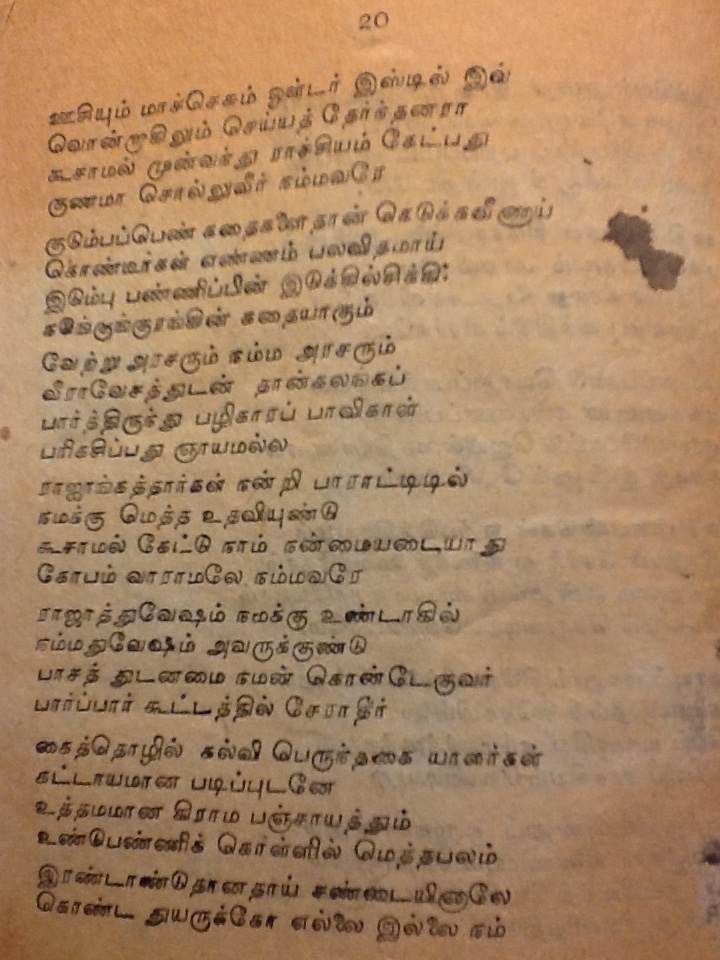 20
ஊசியும் மாச்செசும் ஒன்டர் இஸ்டில் இவ்
வொன்றாகிலும் செய்யத் தேர்ந்தனரா
கூசாமல் முன்வந்து ராச்சியம் கேட்பது
குணமா சொல்லுவீர் நம்மவரே
குடும்பப்பெண் கதைகளைதான் கெடுக்கவீணாய்
கொண்டீர்கள் எண்ணம் பலவிதமாய்
இடும்பு பண்ணிப்பின் இடுக்கில்சிக்கி
கதையாகும்
வேற்று அரசரும் நம்ம அரசரும்
வீராவேசத்துடன் தான்கலங்கப்
பார்த்திருந்து பழிகாரப் பாவிகாள்
பரிகசிப்பது ஞாயமல்ல
ராஜாங்கத்தார்கள் நன்றி பாராட்டிடில்
நமக்கு மெத்த உதவியுண்டு
கூசாமல் கேட்டு நாம் நன்மையடையாது
கோபம் வாராமலே நம்மவரே
ராஜாத்துவேஷம் நமக்கு உண்டாகில்
நம்மதுவேஷம் அவருக்குண்டு
பாசத் துடனமை நமன் கொண்டேகுவர்
பார்ப்பார் கூட்டத்தில் சேராதீர்
கைத்தொழில் கல்வி பெருந்தகை யாளர்கள்
கட்டாயமான படிப்புடனே
உத்தமமான கிராம பஞ்சாயத்தும்
உண்டுபண்ணிக் கொள்ளில் மெத்தபலம்
இரண்டாண்டுதானதாய் சண்டையினாலே
கொண்ட துயருக்கோ எல்லை இல்லை நம்